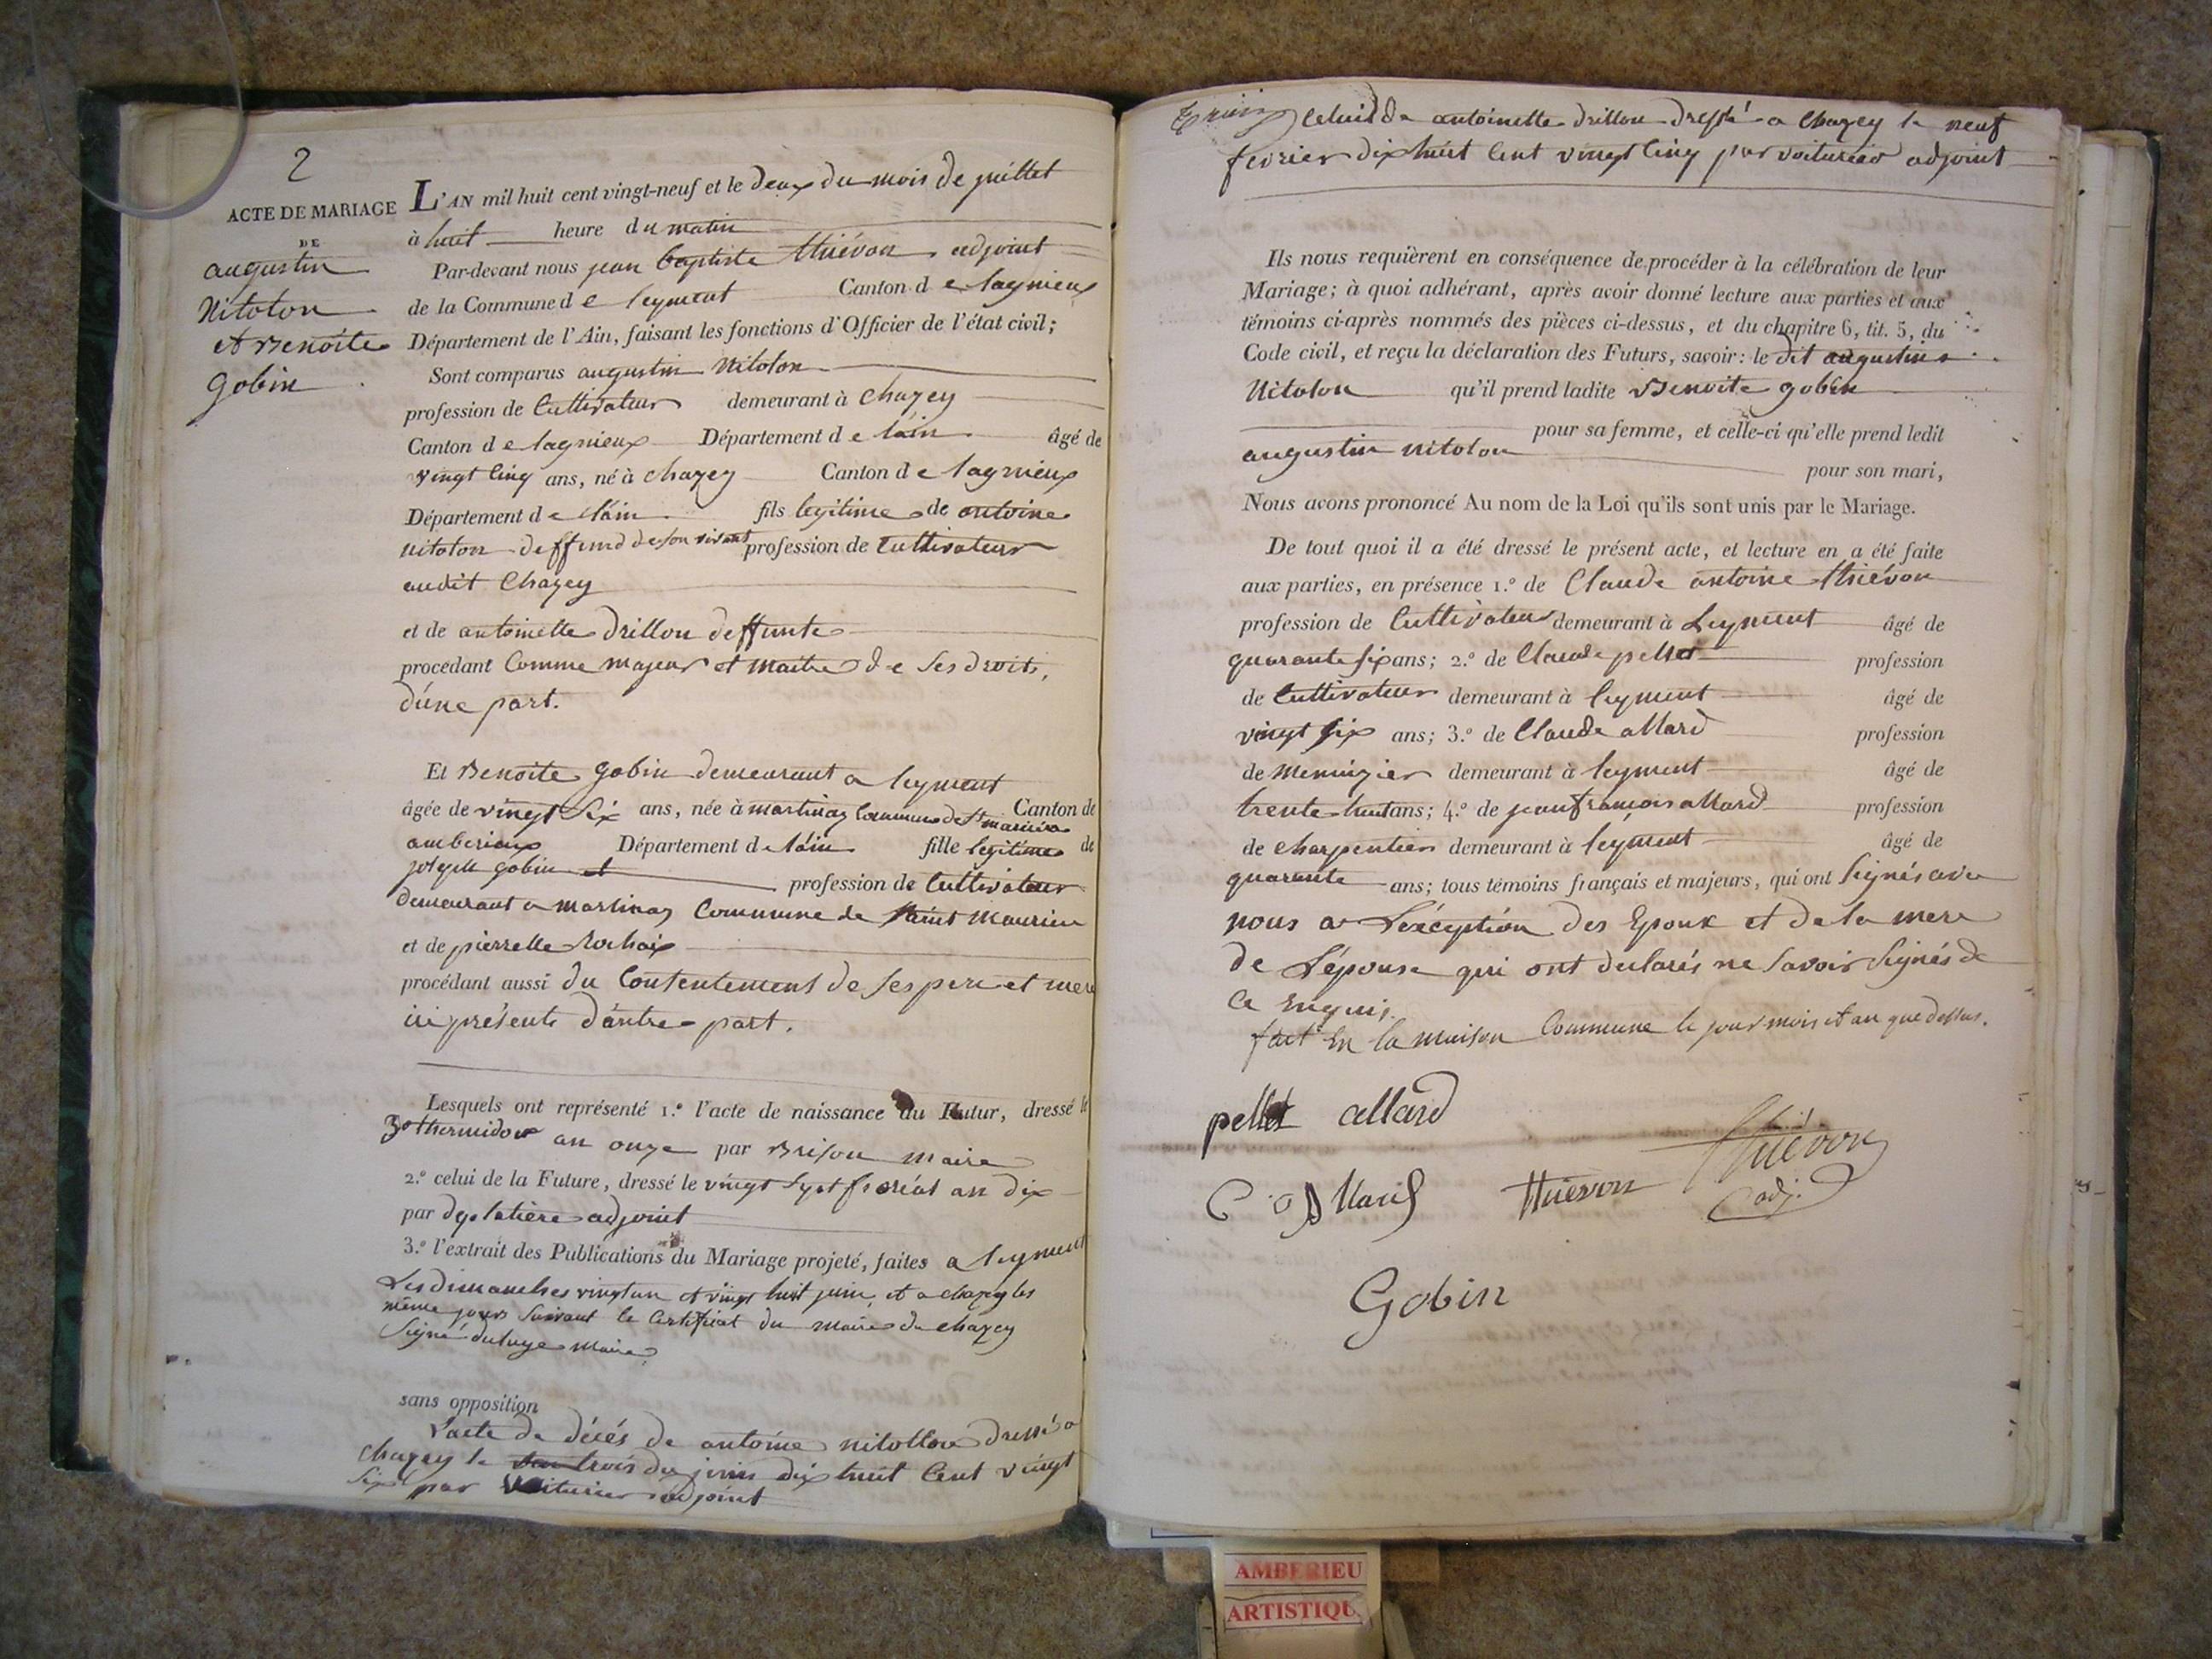 2
ACTE DE MARIAGE
DE
augustin
Nitolon
et Benoite
gobin
L'AN mil huit cent vingt-neuf et le deux du mois de juillet
à huit heure du matin
Par-devant nous jean baptiste thiévon adjoint
de la Commune de leyment Canton de lagnieux
Département de l'Ain, faisant les fonctions d'Officier de l'état civil;
Sont comparus augustin Nitolon
profession de Cultivateur demeurant à chazey
Canton de lagnieux Département de l'ain âgé de
vingt cinq ans, né à chazey Canton de lagnieux
Département de l'ain fils legitime de antoine
nitolon deffund de son vivant profession de Cultivateur
audit Chazey
et de antoinette drillon deffunte
procédant Comme majeur et maitre de ses droits,
d'une part.
Et Benoite gobin demeurant a leyment
âgée de vingt six ans, née à martinaz Commune de St maurice Canton de
amberieux Département de l'ain fille legitime de
joseph gobin et profession de Cultivateur
demeurant a martinaz Commune de saint Maurice
et de pierrette Rochaix
procédant aussi du Consentement de ses pere et mere
ici présents d'autre part.
Lesquels ont représenté 1.º l'acte de naissance du Futur, dressé le
30 thermidor an onze par Brison maire
2.º celui de la Future, dressé le vingt sept floréal an dix
par adjoint
3.º l'extrait des Publications du Mariage projeté, faites a leyment
Les dimanches vingt un et vingt huit juin, et a chazey les
même jours suivant le Certificat du maire de chazey
signé maire
sans opposition
L'acte de décés de antoine nitollon dressé a
chazey le trois du juin dix huit Cent vingt
six par Voiturier adjoint
Celui de antoinette drillon dressé a Chazey le neuf
fevrier dix huit Cent vingt Cinq par voiturier adjoint
Ils nous requièrent en conséquence de procéder à la célébration de leur
Mariage; à quoi adhérant, après avoir donné lecture aux parties et aux
témoins ci-après nommés des pièces ci-dessus, et du chapitre 6, tit. 5, du
Code civil, et reçu la déclaration des Futurs, savoir: le dit augustin
Nitolon qu'il prend ladite Benoite gobin
pour sa femme, et celle-ci qu'elle prend ledit
augustin nitolon
pour son mari,
Nous avons prononcé Au nom de la Loi qu'ils sont unis par le Mariage.
De tout quoi il a été dressé le présent acte, et lecture en a été faite
aux parties, en présence 1.º de Claude antoine thiévon
profession de Cultivateur demeurant à Leyment âgé de
quarante six ans; 2.º de Claude pellet profession
de Cultivateur demeurant à leyment âgé de
vingt six ans; 3.º de Claude allard profession
de menuizier demeurant à leyment âgé de
trente huit ans; 4.º de jean françois allard profession
de charpentier demeurant à leyment âgé de
quarante ans; tous témoins français et majeurs, qui ont signés avec
nous a L'exception des Epoux et de la mere
de L'épouse qui ont declarés ne savoir signés de
Ce Enquis.
fait En la maison Commune le jour mois et an que dessus.
pellet allard
thievon
adj.
C allard thiévon
Gobin
AMBERIEU
ARTISTIQU